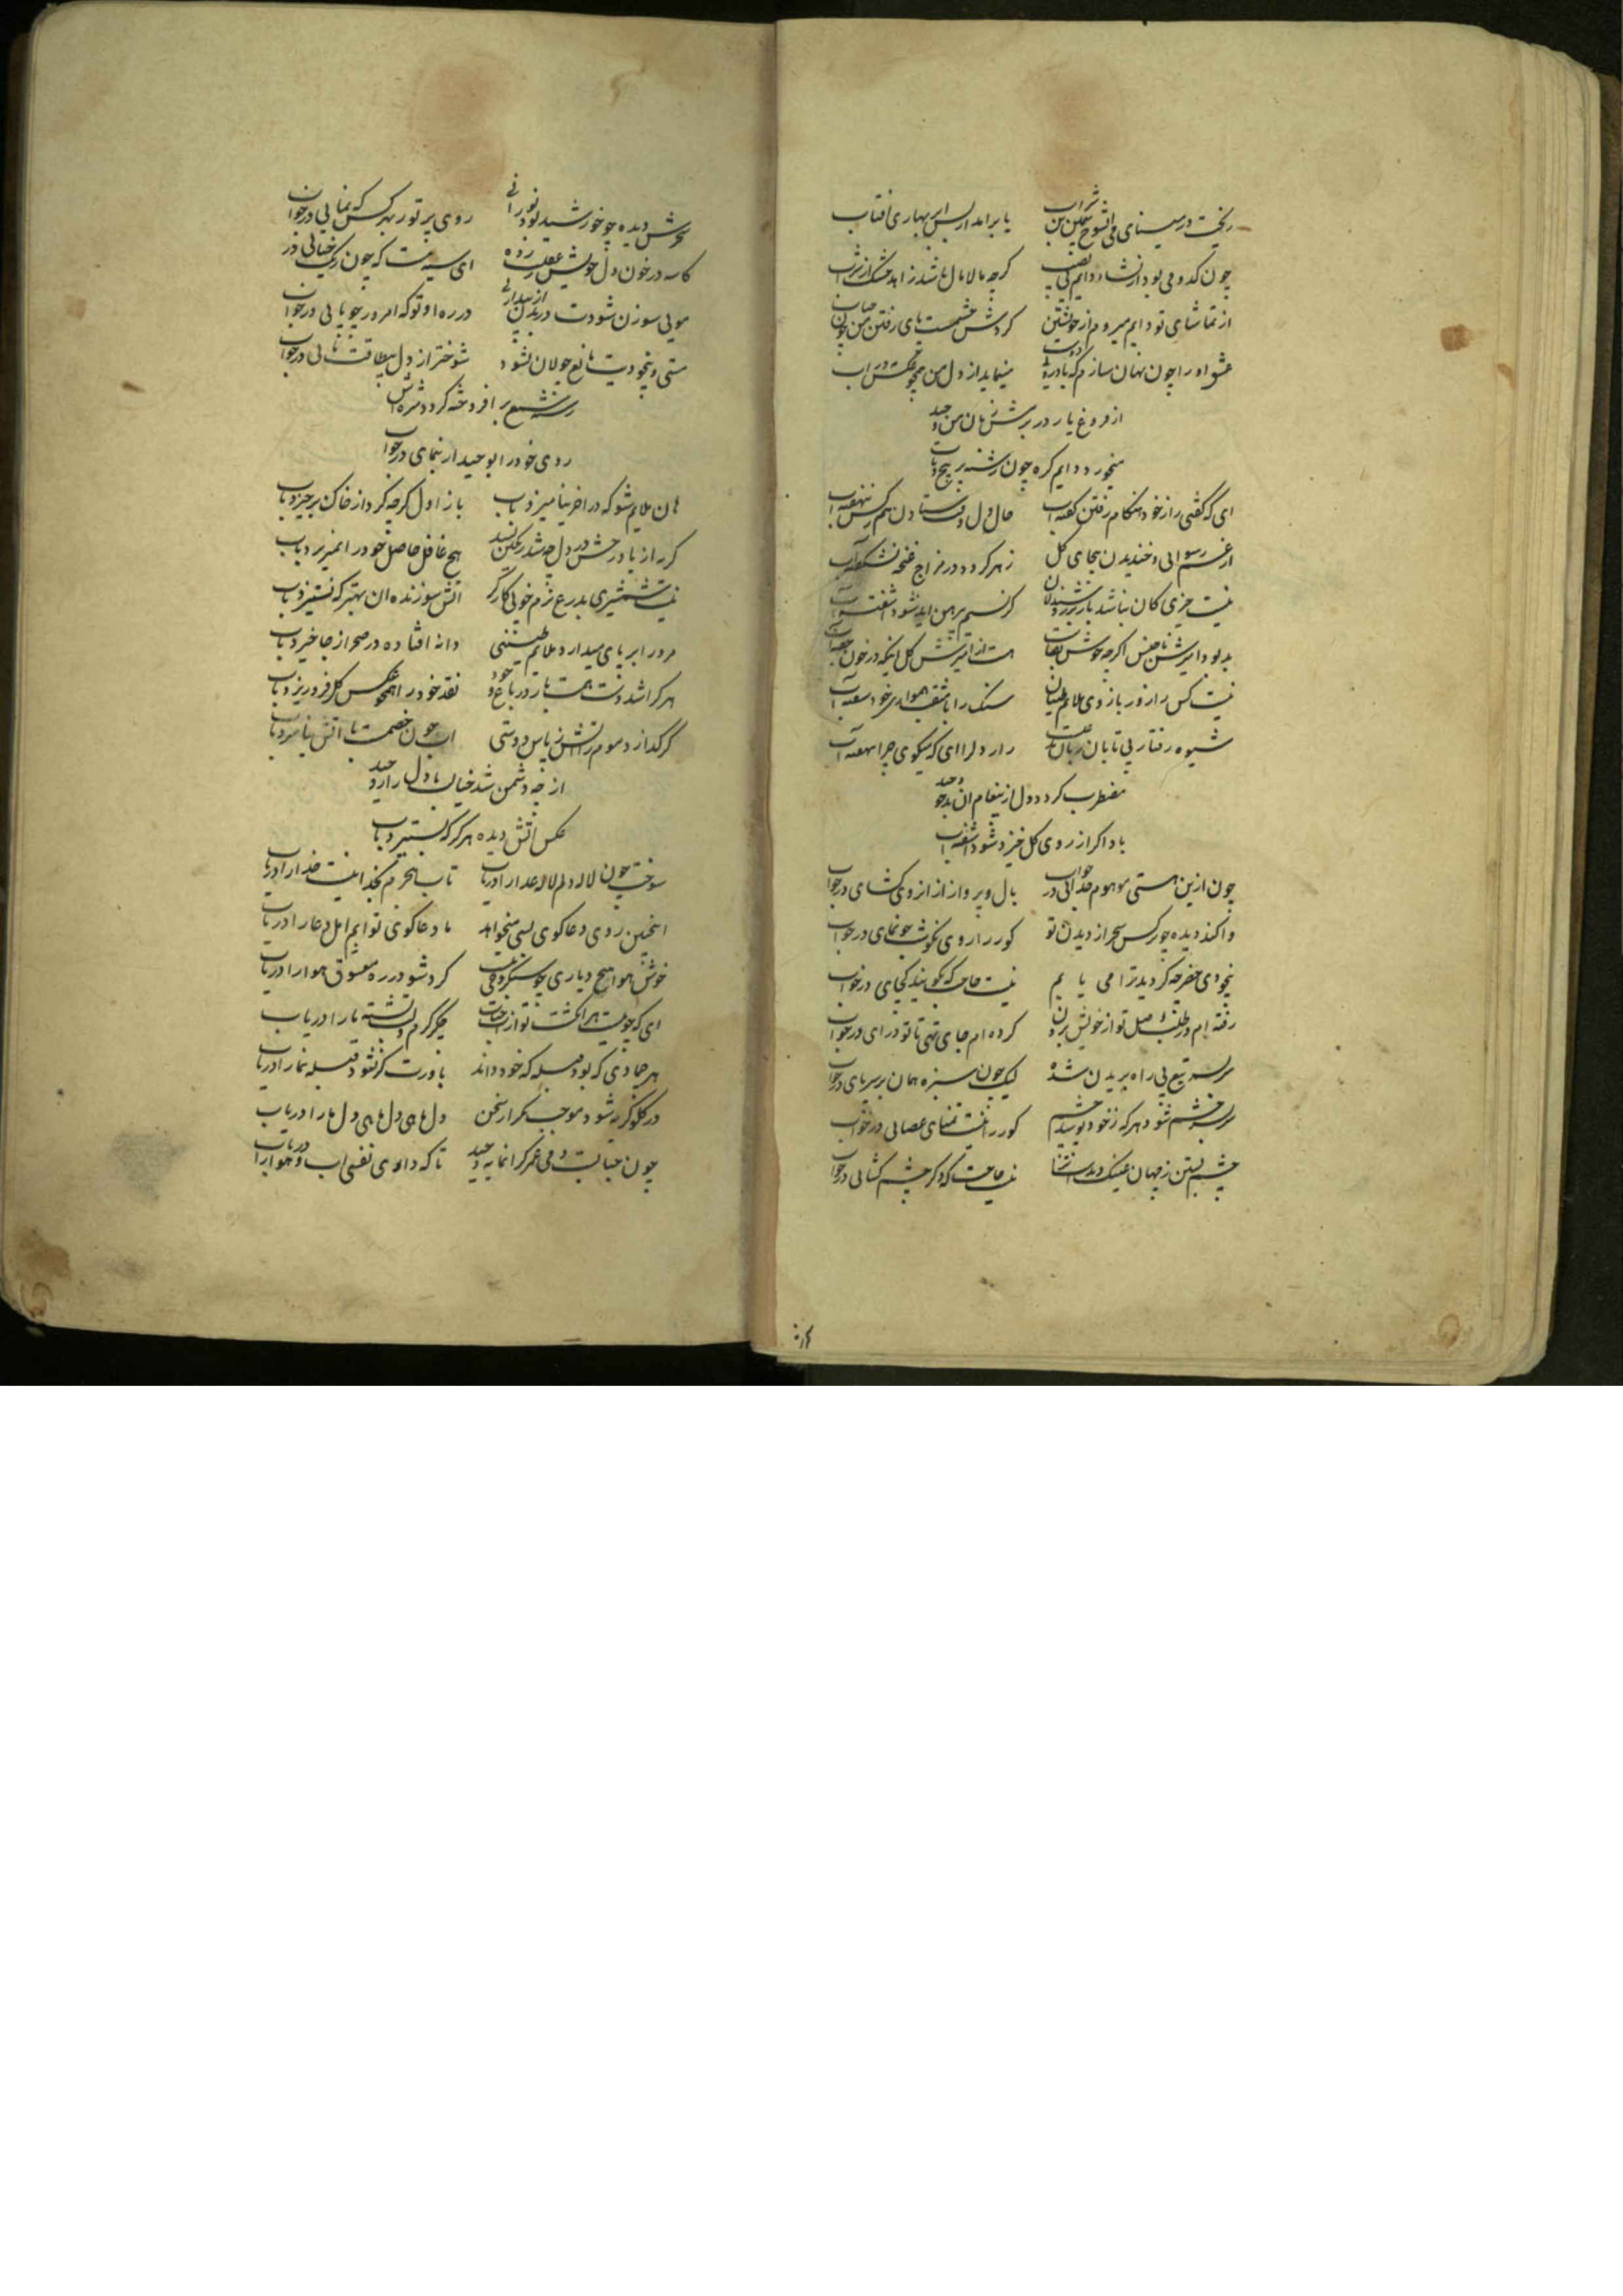 ریخت در مینای می آن شوخ سیمین تن شراب یا برآمد از پس ابر بهاری آفتاب
چون کدو می بود از نشاء دایم بی نصیب گرچه مالامال باشد زاهد خشک از شراب
از تماشای تو دایم میروم از خویشتن گردش چشمست پای رفتن من چون حباب
عشق او را چون نهان سازم که با دریا دلی مینماید از دل من همچو عکس در آب
از فروغ یار در برش زبان من وحید
میخورد دایم گره چون رشته پر پیچ و تاب
ای که گفتی راز خود هنگام رفتن گفته آب حال دل افتادن هم کس ننهفته آب
از غم رسوایی و خندیدن بیجای گل زهر گردد در مزاج غنچه نشکفته آب
نیست چیزی کان نباشد بار بر گر نسیم پیرهن آید شود آشفته آب
بد بود آمیزش ناجنس اگرچه خوش هست از آمیزش گل اینکه در خون خفته آب
نیست کس را زور بازوی ملایم طینتان سنگ را با مثقب همواری خود سفته آب
شیوه رفتار بی تابان زبان راز دلرا ای که میگوی چرا نهفته آب
مضطرب گردد دل از پیغام آن بدخو وحید
باد اگر از روی گل خیزد شود آشفته آب
چون ازین هستی موهوم جدایی در خواب بال و پرواز از آنرو بگشای در خواب
وا کند دیده چو نرگس سحر از دیدن تو کور را روی نکو خوش چو نمای در خواب
بیخودی خضر چه گردید ترا می یابم نیست حاجت که بگویند کجای در خواب
رفته ام در طلب وصل تو از خویش برون کرده ام جای تهی تا تو درای در خواب
بر سر تیغ پی راه بریدن شده لیک چون سبزه همان بر سر پای در خواب
سر بسر چشم شود هر که ز خود پوشید چشم کور را نیست تمنای عصایی در خواب
چشم بستن ز جهان عینک دیدار نیست حاجت که دگر چشم گشایی در خواب
دیده چو خورشید بود نورانی روی پر نور بهر کس که نمایی در خواب
کاسه در خون دل خویش زده ای سیه مست که چون رنگ حنایی در خواب
موی سوزن شودت در بدن از بیداری در ره او تو که امروز چو پایی در خواب
مستی و بیخودیت مانع جولان نشود شوختر از دل بیطاقت مایی در خواب
رشته شمع بر افروخته گردد مژه اش
روی خود را بوحید ار بنمای در خواب
هان ملایم شو که در آخر نیامیزد بآب باز اول گرچه گرد از خاک برخیزد بآب
گر از یاد رخش در دل چه شد ممکن نشد هیچ غافل حاصل خود را نمیریزد بآب
نیست شمشیری بدرع نرم خویی کارگر آتش سوزنده آن بهتر که نستیزد بآب
مرد را بر پای میدارد ملایم طینتی دانه افتاده در صحرا ز جا خیزد بآب
هر که را شد دست همت باز در باغ وجود نقد خود را همچو عکس گل فرو ریزد بآب
گر گدازد موم را آتش ز پاس دوستی آب چون خصمست با آتش نیامیزد بآب
از چه دشمن شد خیالت با دل زار وحید
عکس آتش دیده هرگز که بستیزد بآب
سوخت چون لاله دلم لاله عذارا دریاب تاب هجرم بخدا نیست خدا را دریاب
اینچنین روی دعاگوی بسی میخواهد ما دعاگوی توایم اهل دعا را دریاب
خوش هوا هیچ دیاری چو سبکروحی نیست گرد شو در ره معشوق هوا را دریاب
ای که چون هر انگشت تو از جگر گرم و لب تشنه ما را دریاب
هر جمادی که بود قبله که خود داند باورت گر نشود قبله نما را دریاب
در گلو گریه شود موجب تکرار سخن دل ما هی دل ما هی دل ما را دریاب
چون حبابیست دمی عمر گرانمایه وحید تا که داری نفسی آب و هوا را دریاب